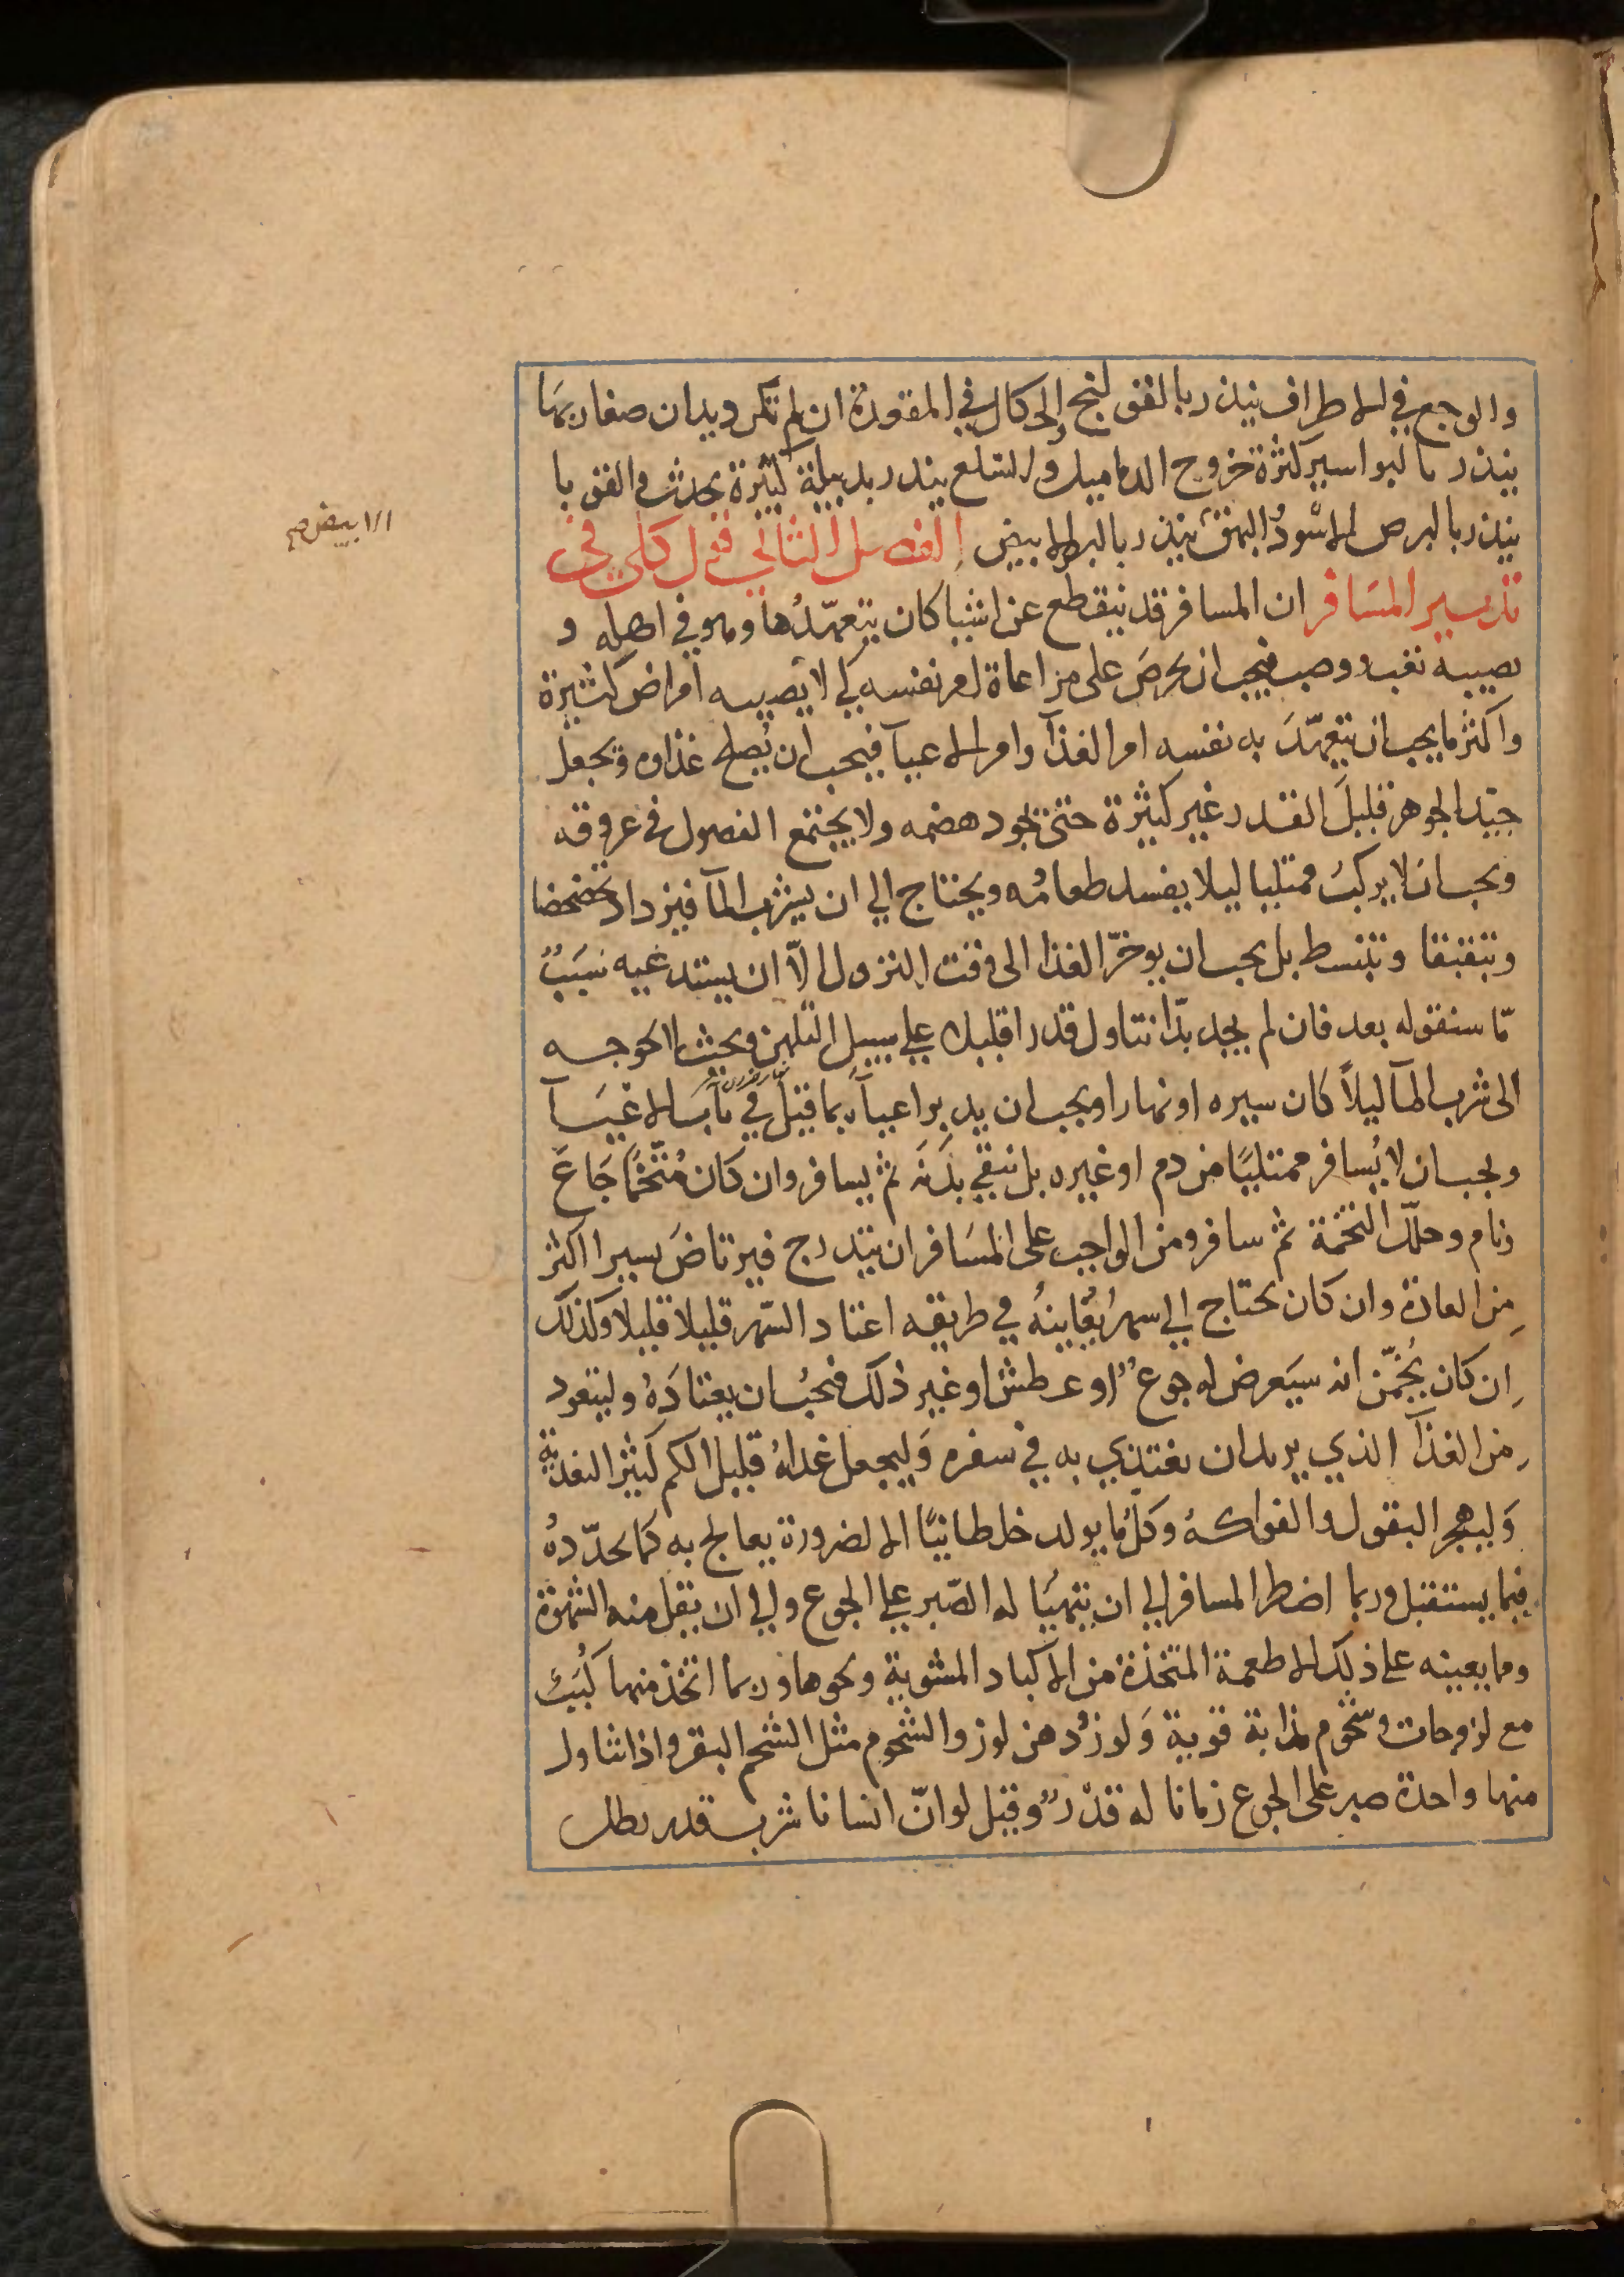 والوجع في الاطراف ينذر بالقولنج والحكاك في المقعدة ان لم تكن ديدان صغار بها
ينذر بالبواسير كثرة خروج الدماميل والسلع ينذر بدبيلة كثيرة يحدث والقوبا
ينذر بالبرص الاسود البهق ينذر بالبرص الابيض الفصل الثاني قول كلي في
تدبير المسافر ان المسافر قد ينقطع عن اشيا كان يتعهّدُها وهو في اهله و
يصيبه تعب ووصب فيجب ان يحرصَ على مراعاة امر نفسه كي لا يصيبه امراض كثيرة
واكثر ما يجب ان يتعهّدَ به نفسه امر الغذآ وامر الاعيآ فيجب ان يُصلح غذاوه ويجعل
جيّد الجوهر قليلَ القدر غير كثيرة حتى يجود هضمه ولا يجتمع الفضول في عروقه
ويجب ان لا يركبُ ممتليا ليلا يفسد طعامُه ويحتاج الي ان يشرب المآ فيزداد تخضخضا
وتبقبقا وتبسط بل يجب ان يوخرّ الغذا الى وقت النزول الاّ ان يستدعيه سَبَبٌ
مّا سنقوله بعد فان لم يجد بدّا تناول قدرا قليلا علي سبيل التلهن وبحيث لا يحوجه
الى شرب المآ ليلاً كان سيره او نهارا ويجب ان يدبر اعيآه بما قيل في باب الاعيَآ
ويجب ان لا يُسافر ممتليًا من دم او غيره بل ينقي بدَنَه ثم يسافر وان كان مُتّخمًا جَاعَ
ونام وحلّل التخمة ثم سافر ومن الواجب على المسَافر ان يتدرج فيرتاضَ يسيرا اكثر
من العادة وان كان يحتاج الي سهرٍ يُعَاينهُ في طريقه اعتاد السّهر قليلا قليلا وكذلك
ان كان يُخمّن انه سيَعرض له جوعٌ او عطش او غير ذلك فيجبُ ان يعتادَهُ وليتعود
من الغذآ الذي يريد ان يغتذي به في سفره وَليجعل غداهُ قليل الكم كثير التغذية
وَليهجر البقول والفواكهُ وكلّ ما يولد خلطا نيًّا الا لضرورة يعالج به كما يحدّدهُ
فيما يستقبل وربما اضطر المسافر الي ان يتهيّا له الصّبر علي الجوع والي ان يقل منه الشهوة
ومما يعينه على ذلك الاطعمة المتخذة من الاكباد المشوية ونحوها وربما اتخذ منها كُبَبٌ
مع لزوجات وشحوم مذابة قوية وَلوز ودهن لوز والشحوم مثل الشحم البقر واذا تناول
منها واحدة صبر على الجوع زمانا له قدْرٌ وقيل لو انّ انسانا شرب قدر رطل
الابيض صح